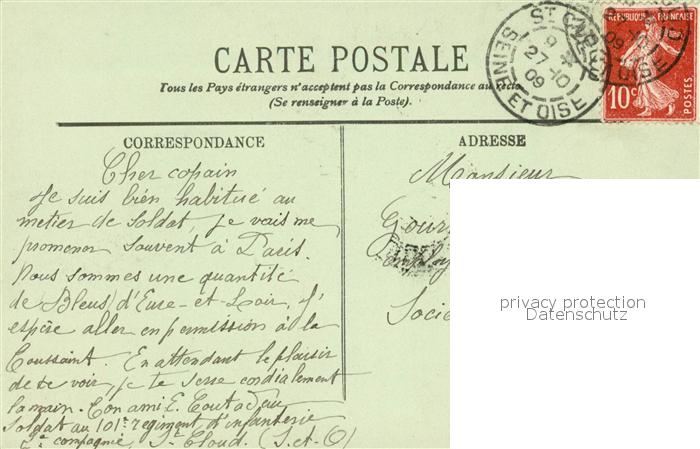 CARTE POSTALE
Tous les Pays étrangers n'acceptent pas la Correspondance au recto
(Se renseigner à la Poste).
CORRESPONDANCE
Cher copain
Je suis bien habitué au
metier de soldat, je vais me
promener souvent à Paris.
Nous sommes une quantité
de Bleus d'Eure-et-Loir, J'
espère aller en permission à la
Toussaint. En attendant le plaisir
de te voir je te serre cordialement
la main. Ton ami E.
Soldat au 101e régiment d'infanterie
2e compagnie, St Cloud. (S.-et-O)
ADRESSE
Monsieur
Gour
employ
Socié
privacy protection
Datenschutz
ST CLOUD
9
27 10
09
SEINE ET OISE
REPUBLIQUE FRANÇAISE
10c
POSTES